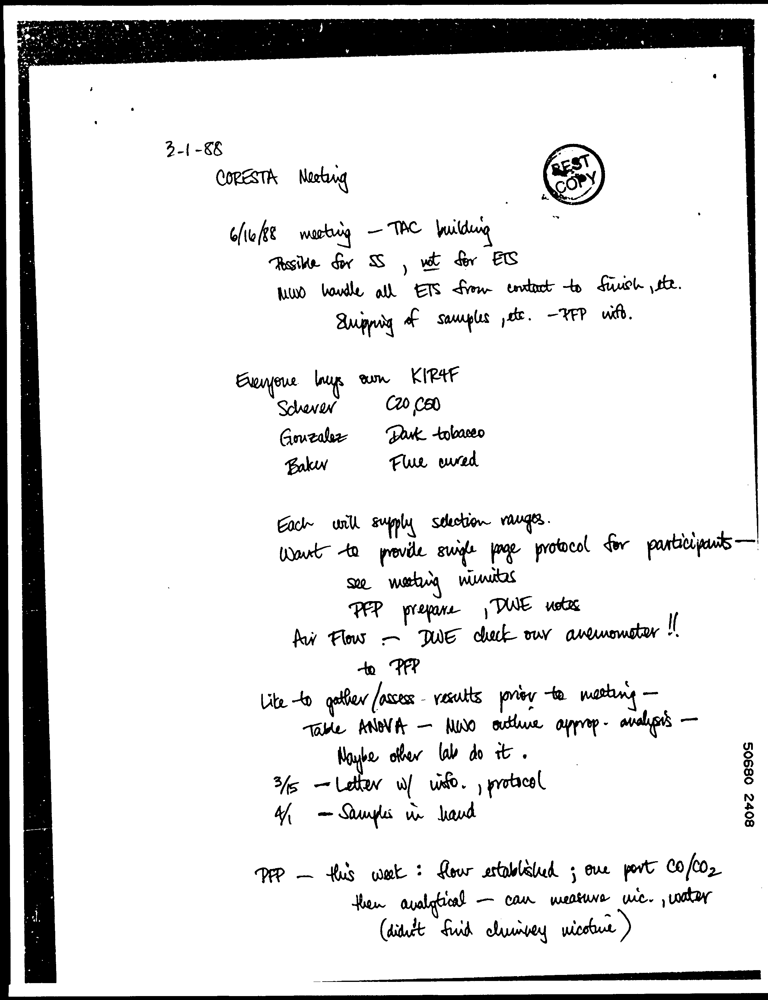 3-1-88
CORESTA Meeting
BEST COPY
6/16/88 meeting — TAC building
Possible for SS, not for ETS
MWO handle all ETS from contact to finish, etc.
Shipping of samples, etc. - PFP info.
Everyone buys own K1R4F
Scherer C20, C50
Gonzalez Dark tobacco
Baker Flue cured
Each will supply selection ranges.
Want to provide single page protocol for participants —
see meeting minutes
PFP prepare, DWE notes
Air Flow — DWE check our anemometer !!
to PFP
Like to gather/assess results prior to meeting —
Table ANOVA — MWO outline approp. analysis —
Maybe other lab do it.
3/15 — Letter w/ info., protocol
4/1 — Samples in hand
PFP — this week : flow established ; one port CO/CO2
then analytical — can measure nic., water
(didn't find chimney nicotine)
50680 2408